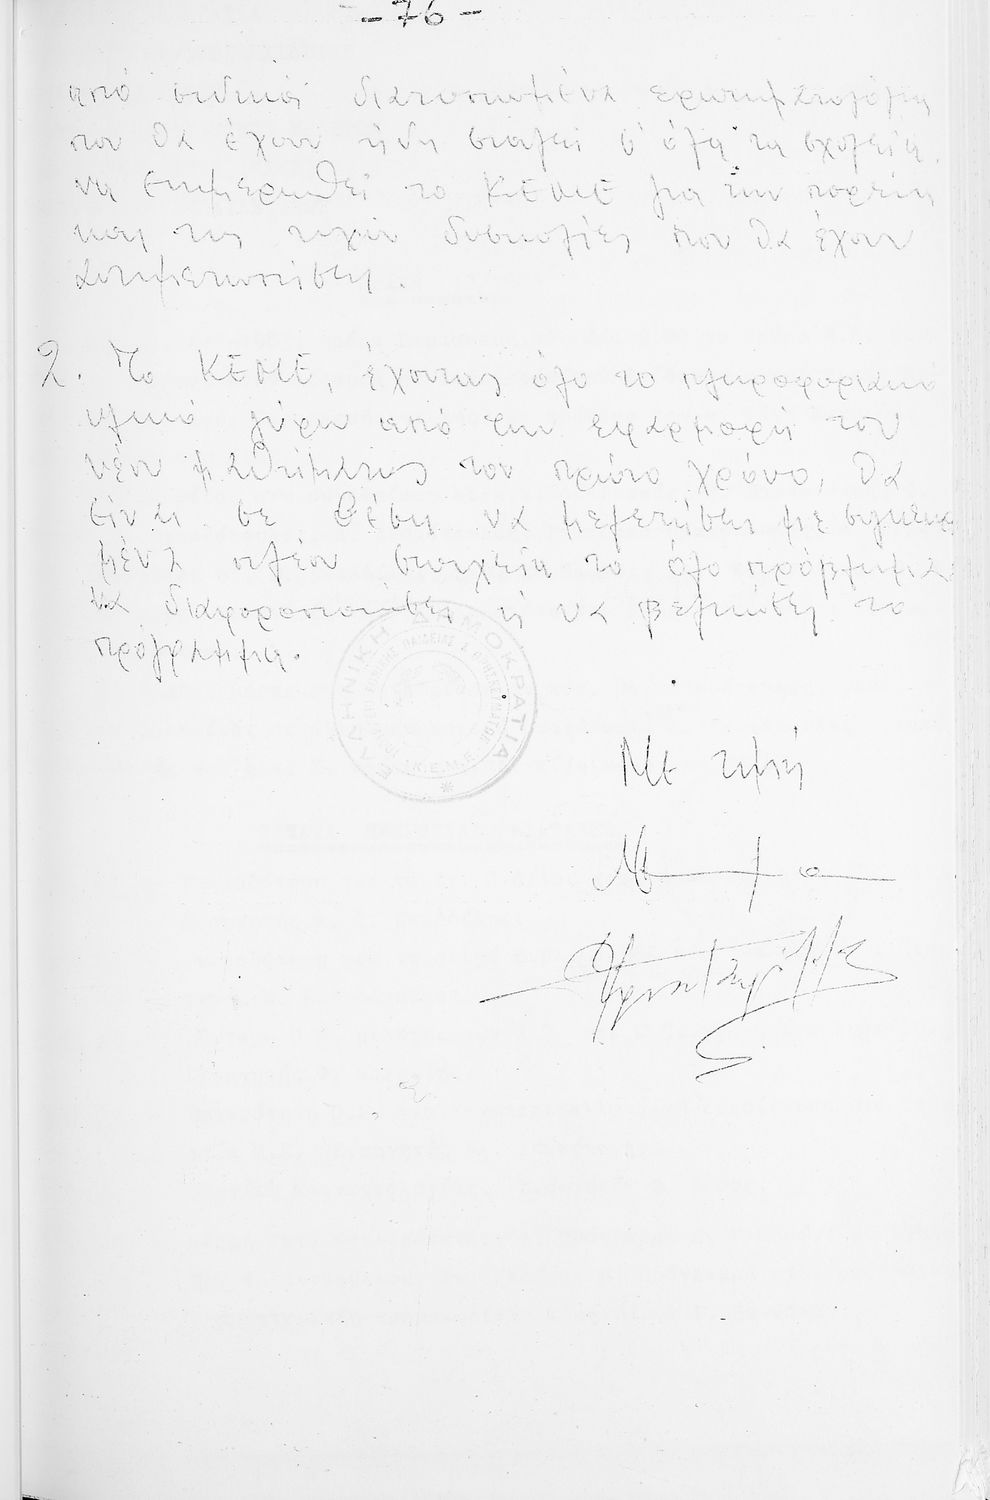 -76-
από ειδικά διατυπωμένα ερωτηματολόγια
που θα έχουν ήδη σταλεί σ' όλα τα σχολεία,
να ενημερωθεί το ΚΕΜΕ για την πορεία
και τις τυχόν δυσκολίες που θα έχουν
αντιμετωπίσει.
2. Το ΚΕΜΕ, έχοντας όλο το πληροφοριακό
υλικό γύρω από την εφαρμογή του
νέου μαθήματος τον πρώτο χρόνο, θα
είναι σε θέση να μελετήσει με συγκεκρ
μένα πλέον στοιχεία το όλο πρόβλημα
να διαφοροποιήσει ή να βελτιώσει το
πρόγραμμα.
ΕΛΛΗΝΙΚΗ ΔΗΜΟΚΡΑΤΙΑ
Κ.Ε.Μ.Ε.
Με τιμή